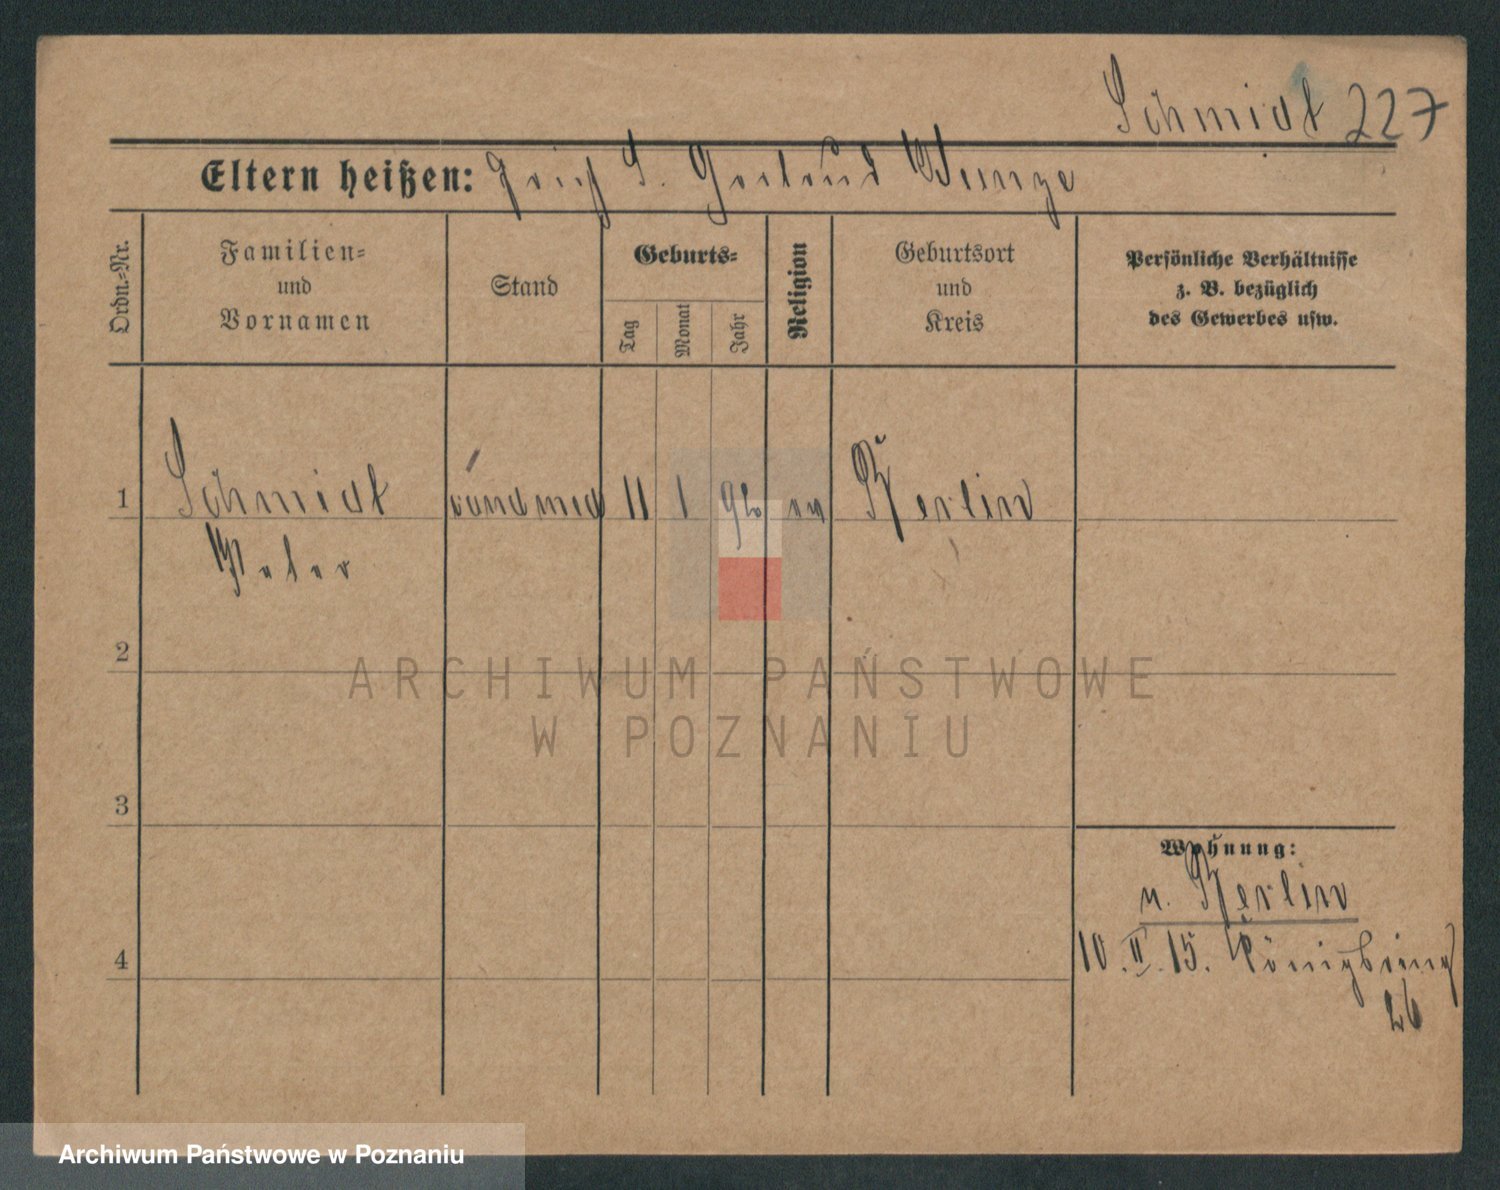 Schmidt 227
Eltern heißen: Erich S. Gertrud Wunge
Ordn.-Nr.
Familien-
und
Vornamen
Stand
Geburts-
Tag
Monat
Jahr
Religion
Geburtsort
und
Kreis
Persönliche Verhältnisse
z. B. bezüglich
des Gewerbes usw.
1 Schmidt cand med 11 1 92 ev Berlin
Peter
2
3
4
Wohnung:
n. Berlin
10. II. 15. Königsring
26
ARCHIWUM PAŃSTWOWE
W POZNANIU
Archiwum Państwowe w Poznaniu